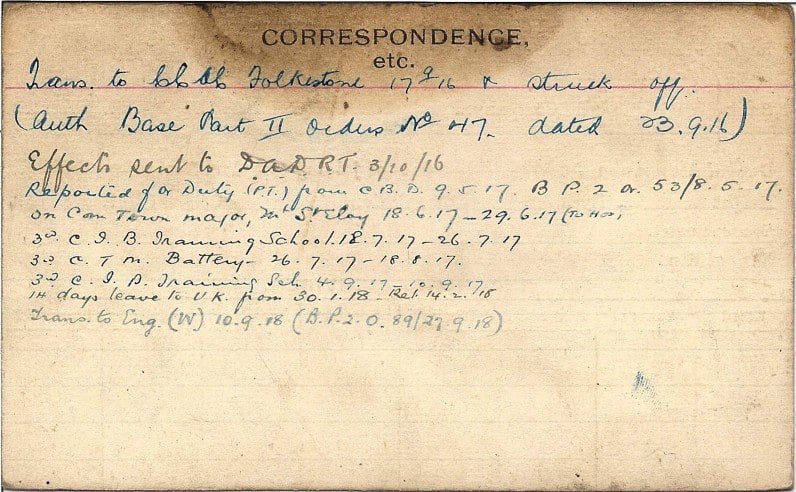 CORRESPONDENCE,
etc.
Trans. to CCAC Folkestone 17 9 16 & struck off.
(Auth Base Part II Orders No 47. dated 23.9.16)
Effects sent to D.A.D.R.T. 3/10/16
Reported for Duty (P.T.) from C.B.D. 9.5.17. B P. 2 O. 53/8.5.17.
On Com Town major, Mt St Eloy 18.6.17-29.6.17 (To Hos)
3rd C. I. B. Training School. 18.7.17-26.7.17
3rd C. T. M. Battery- 26.7.17-18.8.17.
3rd C. I. B. Training Sch. 4.9.17-10.9.17
14 days leave to U.K. from 30.1.18. Ret. 14.2.18
Trans. to Eng. (W) 10.9.18 (B.P.2.O. 89/27.9.18)